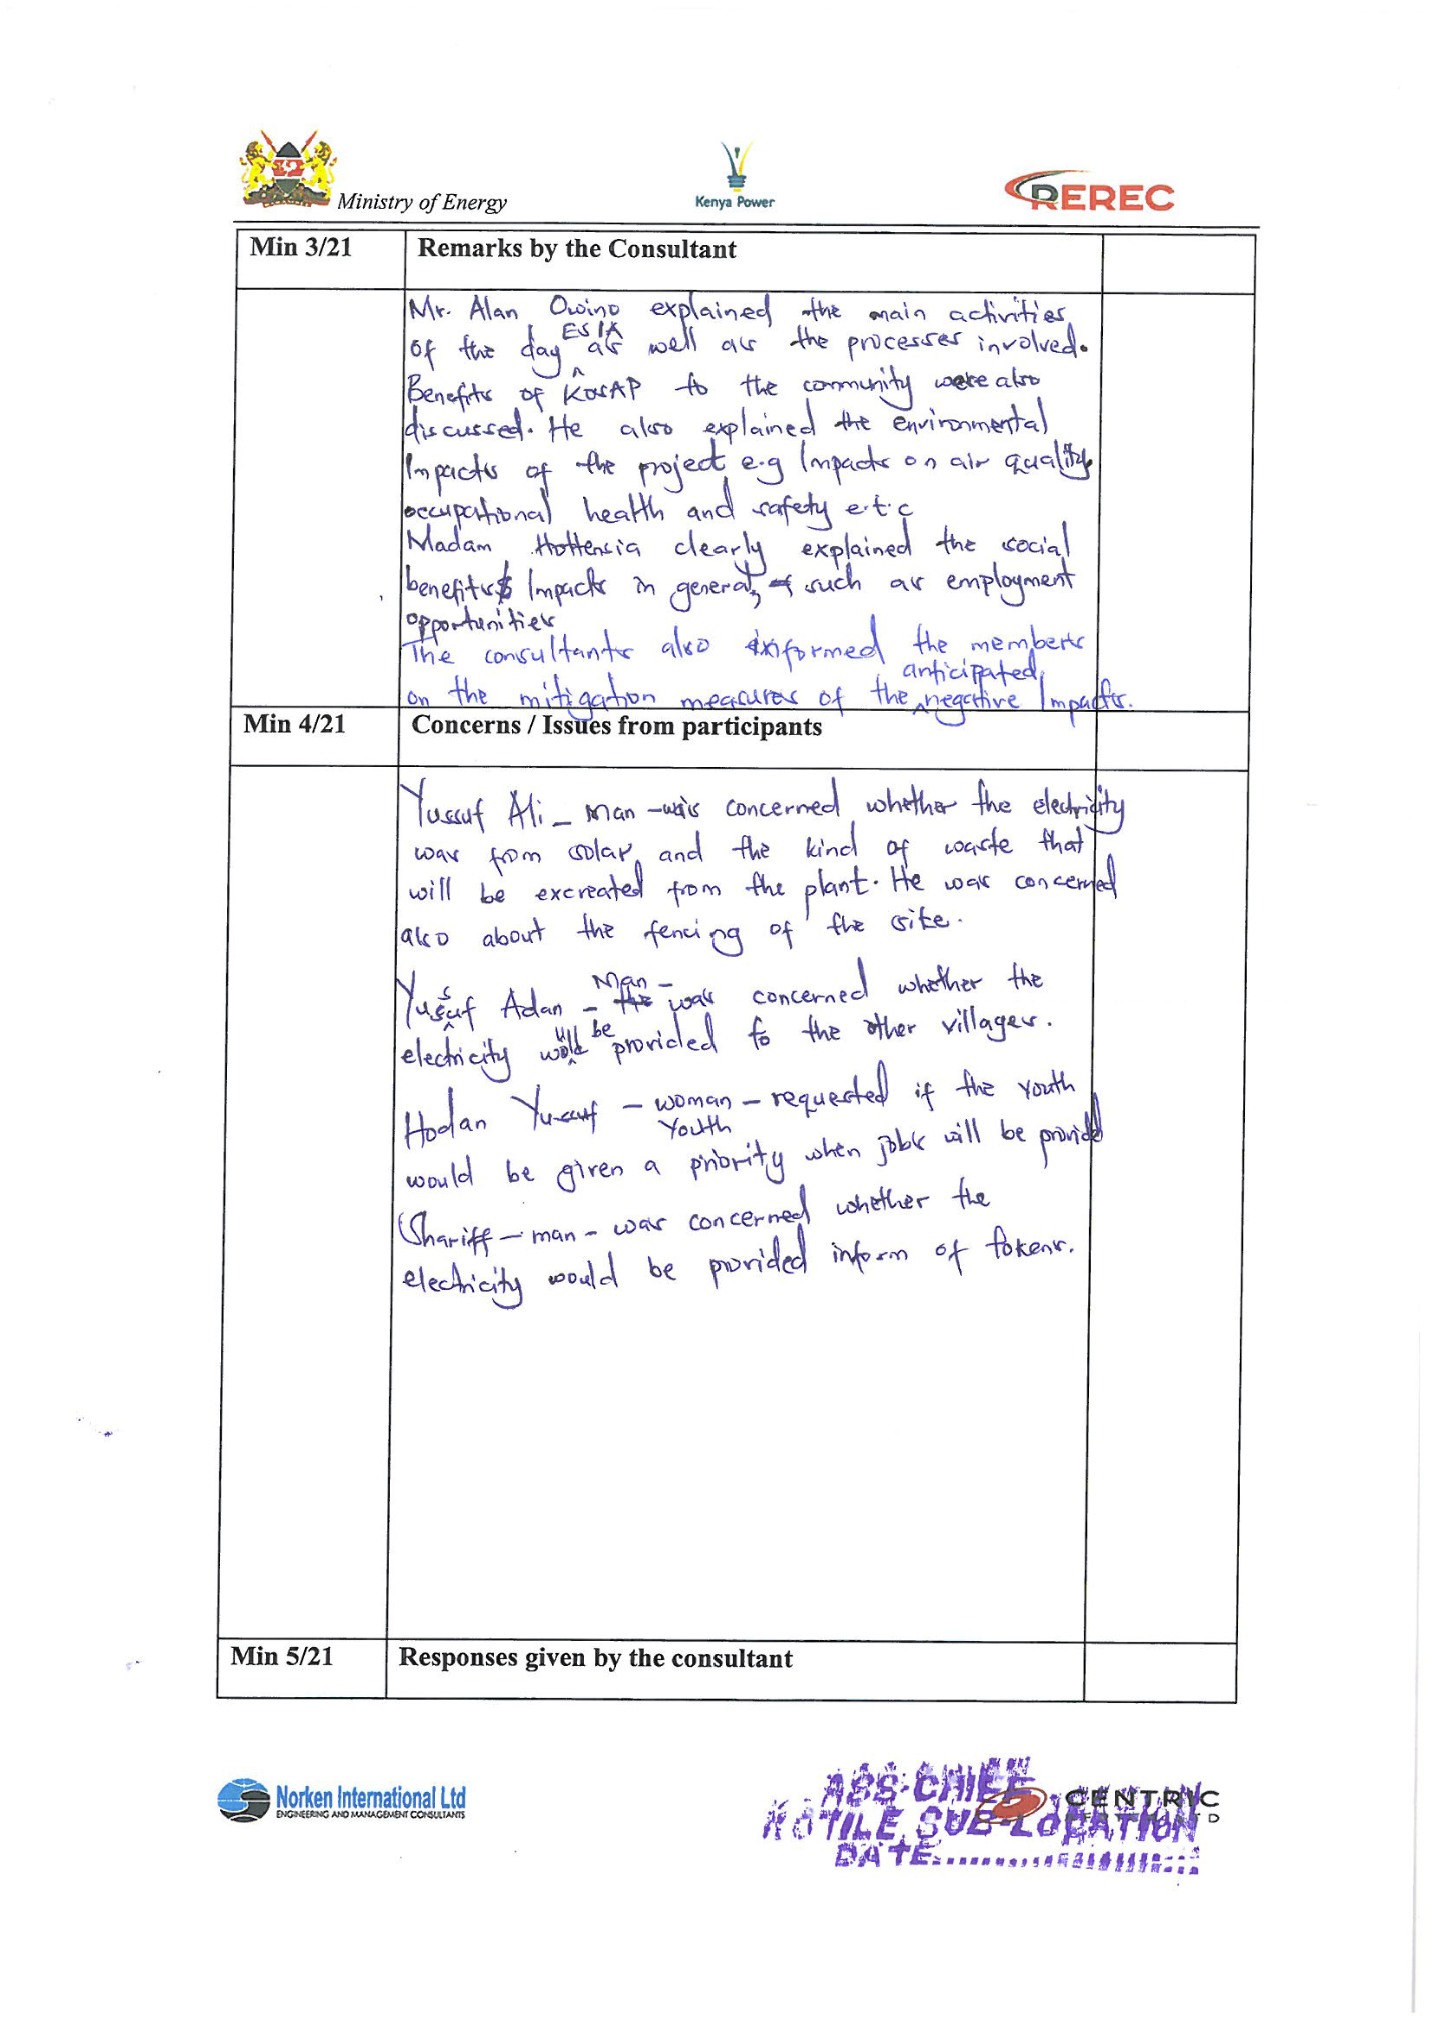 Ministry of Energy
Kenya Power
REREC
Min 3/21 Remarks by the Consultant
Mr. Alan Owino explained the main activities
of the day ESIA as well as the processes involved.
Benefits of KOSAP to the community were also
discussed. He also explained the environmental
Impacts of the project e.g Impacts on air quality,
occupational health and safety e.t.c
Madam Hottensia clearly explained the social
benefits & Impacts in general, such as employment
opportunities
The consultants also informed the members
on the mitigation measures of the anticipated negative Impacts.
Min 4/21 Concerns / Issues from participants
Yussuf Ali - Man - was concerned whether the electricity
was from solar, and the kind of waste that
will be excreated from the plant. He was concerned
also about the fencing of the site.
Yussuf Adan - Man - was concerned whether the
electricity will be provided to the other villages.
Hodan Yussuf - woman - requested if the youth
Youth
would be given a priority when jobs will be provided
Shariff - man - was concerned whether the
electricity would be provided inform of tokens.
Min 5/21 Responses given by the consultant
Norken International Ltd
ENGINEERING AND MANAGEMENT CONSULTANTS
CENTRIC
ASS. CHIEF
KOTILE SUB-LOCATION
DATE: